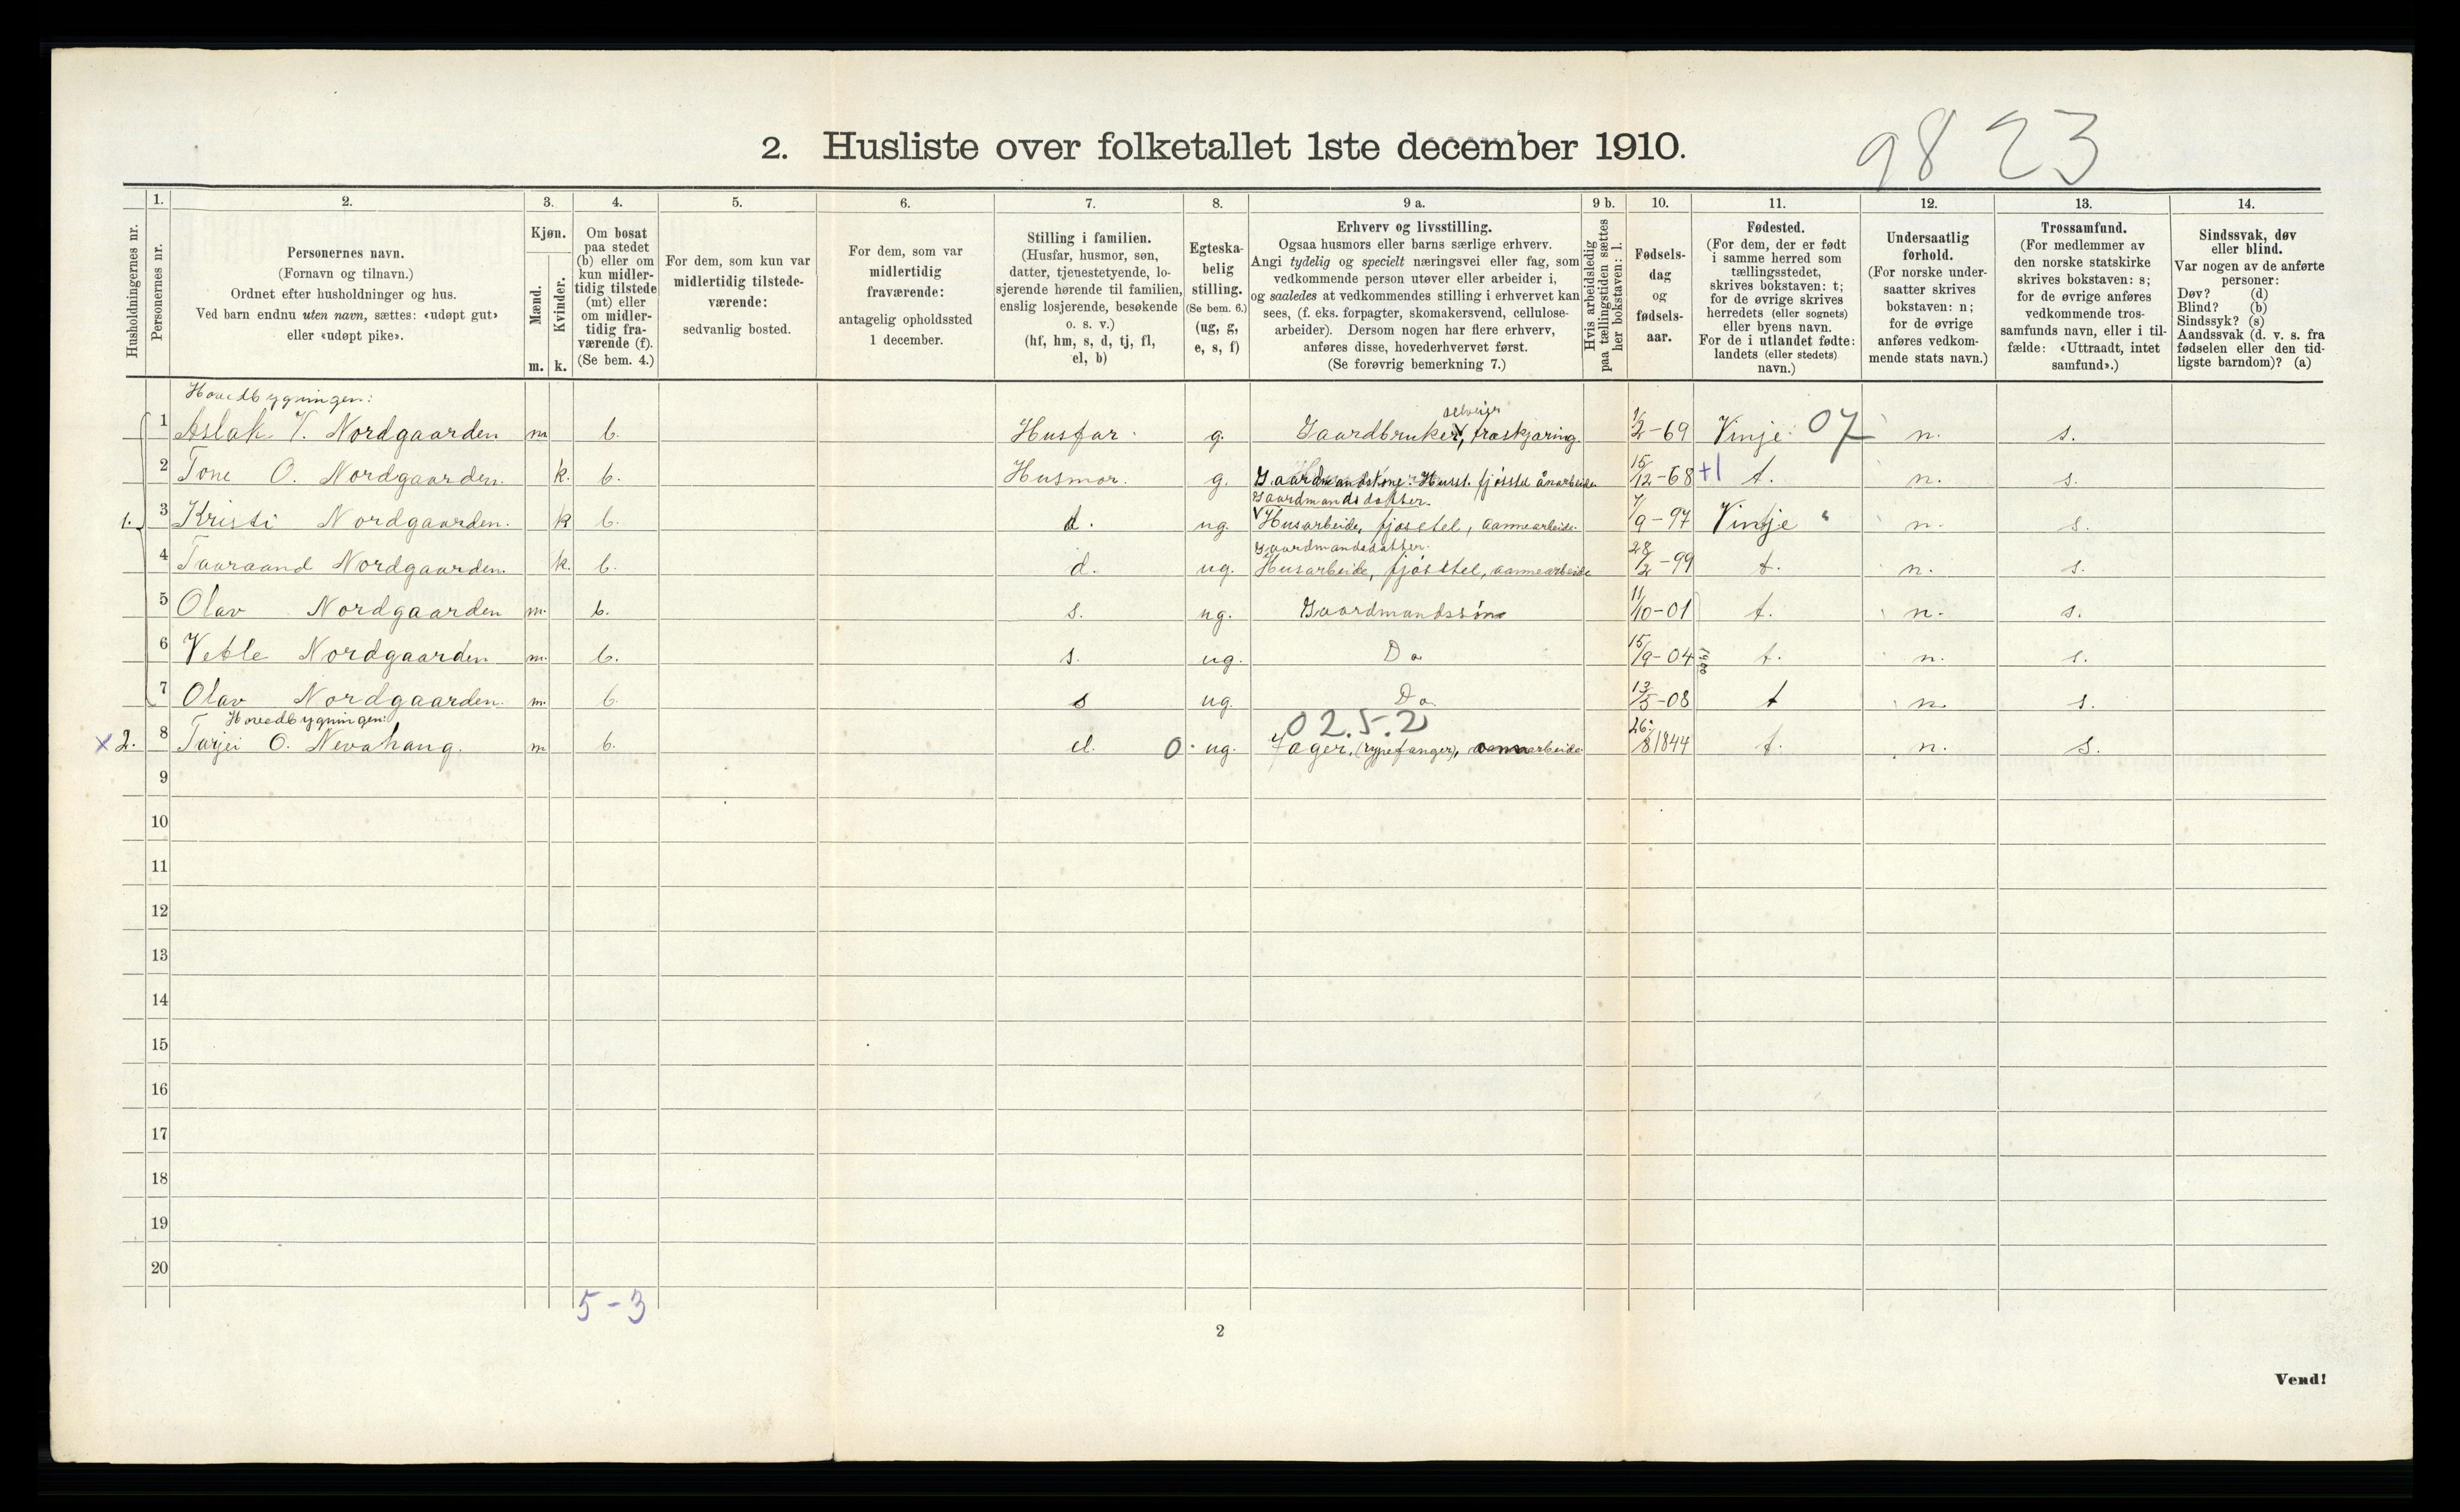 2. Husliste over folketallet 1ste december 1910.
9823
1. 2. 3. 4. 5. 6. 7. 8. 9 a. 9 b. 10. 11. 12. 13. 14.
Husholdningernes nr.
Personernes nr.
Personernes navn.
(Fornavn og tilnavn.)
Ordnet efter husholdninger og hus.
Ved barn endnu uten navn, sættes: «udøpt gut»
eller «udøpt pike».
Kjøn.
Mænd.
Kvinder.
m. k.
Om bosat
paa stedet
(b) eller om
kun midler-
tidig tilstede
(mt) eller
om midler-
tidig fra-
værende (f).
(Se bem. 4.)
For dem, som kun var
midlertidig tilstede-
værende:
sedvanlig bosted.
For dem, som var
midlertidig
fraværende:
antagelig opholdssted
1 december.
Stilling i familien.
(Husfar, husmor, søn,
datter, tjenestetyende, lo-
sjerende hørende til familien,
enslig losjerende, besøkende
o. s. v.)
(hf, hm, s, d, tj, fl,
el, b)
Egteska-
belig
stilling.
(Se bem. 6.)
(ug, g,
e, s, f)
Erhverv og livsstilling.
Ogsaa husmors eller barns særlige erhverv.
Angi tydelig og specielt næringsvei eller fag, som
vedkommende person utøver eller arbeider i,
og saaledes at vedkommendes stilling i erhvervet kan
sees, (f. eks. forpagter, skomakersvend, cellulose-
arbeider). Dersom nogen har flere erhverv,
anføres disse, hovederhvervet først.
(Se forøvrig bemerkning 7.)
Hvis arbeidsledig
paa tællingstiden sættes
her bokstaven: l.
Fødsels-
dag
og
fødsels-
aar.
Fødested.
(For dem, der er født
i samme herred som
tællingsstedet,
skrives bokstaven: t;
for de øvrige skrives
herredets (eller sognets)
eller byens navn.
For de i utlandet fødte:
landets (eller stedets)
navn.)
Undersaatlig
forhold.
(For norske under-
saatter skrives
bokstaven: n;
for de øvrige
anføres vedkom-
mende stats navn.)
Trossamfund.
(For medlemmer av
den norske statskirke
skrives bokstaven: s;
for de øvrige anføres
vedkommende tros-
samfunds navn, eller i til-
fælde: «Uttraadt, intet
samfund».)
Sindssvak, døv
eller blind.
Var nogen av de anførte
personer:
Døv? (d)
Blind? (b)
Sindssyk? (s)
Aandssvak (d. v. s. fra
fødselen eller den tid-
ligste barndom)? (a)
Hovedbygningen:
selveiger
1 Aslak V. Nordgaarden m b. Husfar. g. Gaardbruker, træskjæring. 1/2-69 Vinje 07 n. s.
2 Tone O. Nordgaarden. k. b. Husmor. g. Gaardmandskone. Husst. fjøsstel 15/12-68 +1 t. n. s.
Gaardmandsdatter.
1. 3 Kristi Nordgaarden. k b. d. ug. Husarbeide, fjøsstel, aannearbeide. 7/9-97 Vinje " n. s.
Gaardmandsdatter.
4 Taaraand Nordgaarden. k. b. d. ug. Husarbeide, fjøsstel, aannearbeide 28/2-99 t. n. s.
5 Olav Nordgaarden m. b. s. ug. Gaardmandssøn 11/10-01 t. n. s.
6 Vetle Nordgaarden m. b. s. ug. Do 15/9-04 t. n. s.
7 Olav Nordgaarden. m. b. s ug. Do. 13/5-08 t n. s.
Hovedbygningen:
02.5.2
x 2. 8 Tarjei O. Nevahaug. m b. el. 0. ug. Jæger, (rypefanger), 26/8 1844 t. n. s.
9
10
11
12
13
14
15
16
17
18
19
20
5-3
2
Vend!